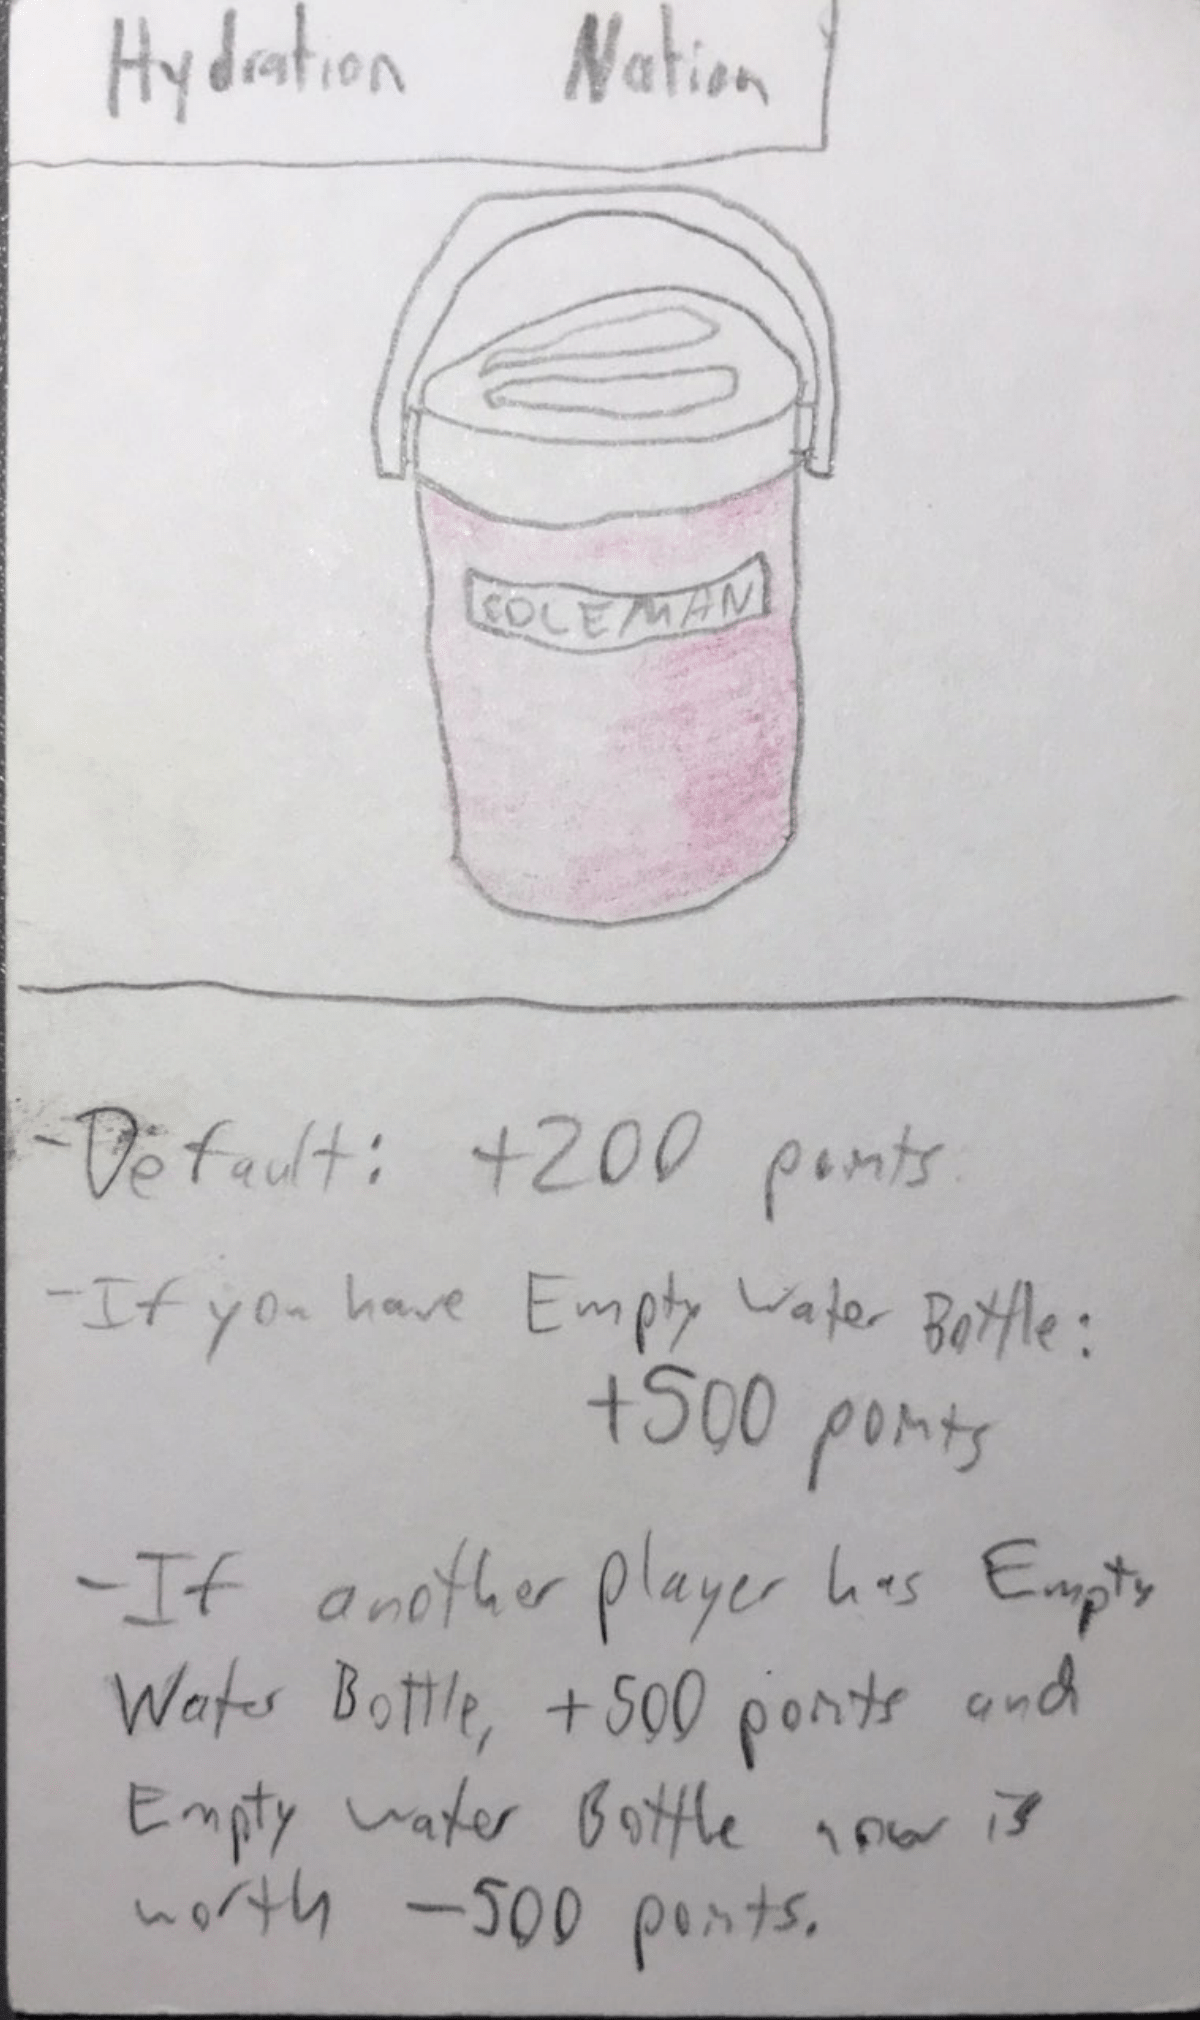 Hydration Nation
COLEMAN
-Default: +200 points.
-If you have Empty Water Bottle:
+500 points
-If another player has Empty
Water Bottle, +500 points and
Empty water Bottle now is
worth -500 points.